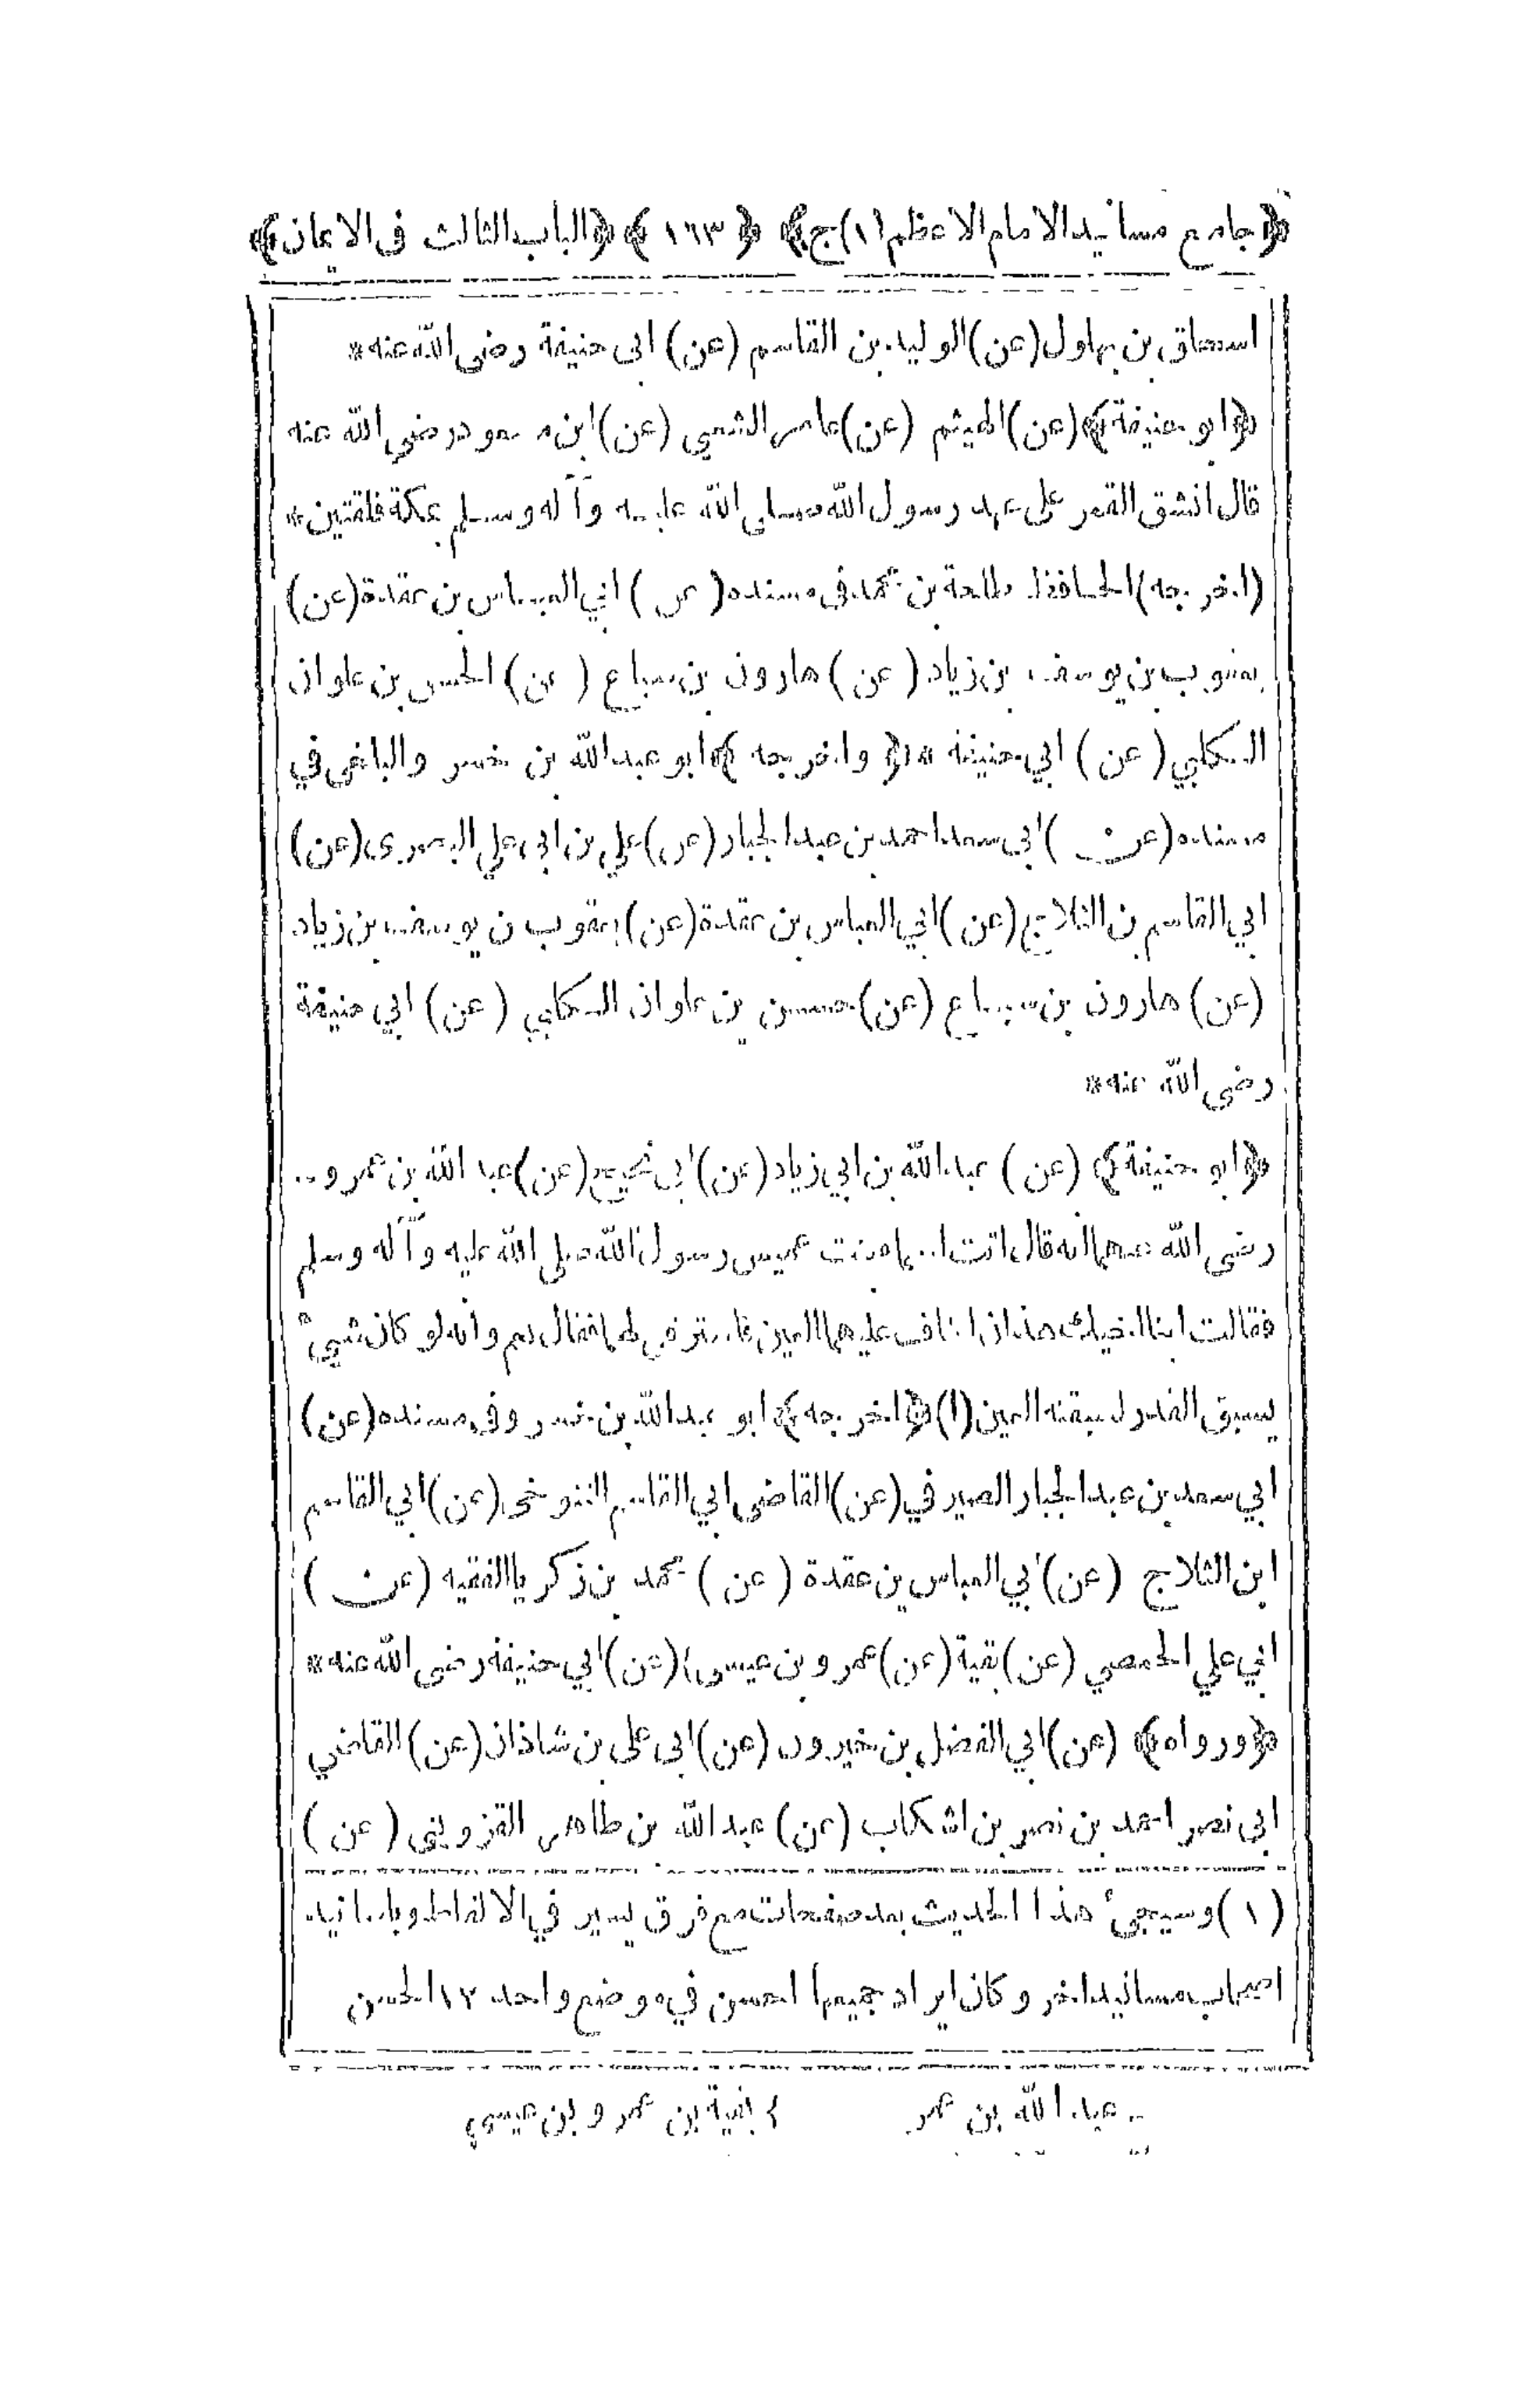 ﴿جامع مسانيد الامام الاعظم(١)ج﴾ ﴿١٦٣﴾ ﴿الباب الثالث فى الايمان﴾
اسحاق بن بهلول (عن) الوليد بن القاسم (عن) ابى حنيفة رضى الله عنه*
﴿ابو حنيفة﴾ (عن) الهيثم (عن) عامر الشعبي (عن) ابن مسعود رضى الله عنه
قال انشق القمر على عهد رسول الله صلى الله عليه وآله وسلم بمكة فلقتين*
(اخرجه) الحافظ طلحة بن محمد فى مسنده (عن) ابي العباس بن عقدة (عن)
يعقوب بن يوسف بن زياد (عن) هارون بن سباع (عن) الحسن بن علوان
الكلبي (عن) ابي حنيفة * ﴿واخرجه﴾ ابو عبد الله بن خسر والبلخى في
مسنده (عن) ابى سعد احمد بن عبد الجبار (عن) علي بن ابى علي البصرى (عن)
ابي القاسم بن الثلاج (عن) ابي العباس بن عقدة (عن) يعقوب بن يوسف بن زياد
(عن) هارون بن سباع (عن) حسن بن علوان الكلبي (عن) ابي حنيفة
رضى الله عنه*
﴿ابو حنيفة﴾ (عن) عبد الله بن ابي زياد (عن) ابى نجيح (عن) عبد الله بن عمرو --
رضى الله عنهما انه قال اتت اسماء بنت عميس رسول الله صلى الله عليه وآله وسلم
فقالت ان اخاف عليهما العين فاسترقى لهما فقال نعم وانه لو كان شيئ
يسبق القدر لسبقته العين (١) ﴿اخرجه﴾ ابو عبد الله بن خسرو فى مسنده (عن)
ابي سعد بن عبد الجبار الصيرفي (عن) القاضى ابي القاسم التنوخى (عن) ابي القاسم
ابن الثلاج (عن) ابي العباس بن عقدة (عن) محمد بن زكريا الفقيه (عن)
ابي علي الحمصي (عن) بقية (عن) عمرو بن عيسى (عن) ابي حنيفة رضى الله عنه*
﴿ورواه﴾ (عن) ابي الفضل بن خيرون (عن) ابى على بن شاذان (عن) القاضي
ابى نصر احمد بن نصر بن اشكاب (عن) عبد الله بن طاهر القزوينى (عن)
(١) وسيجئ هذا الحديث بعد صفحات مع فرق يسير في الالفاظ وباسانيد
اصحاب مسانيد اخر وكان ايراد جميعها احسن في موضع واحد ١٢ الحسن
-- عبد الله بن عمر
بقية بن عمرو بن عيسى